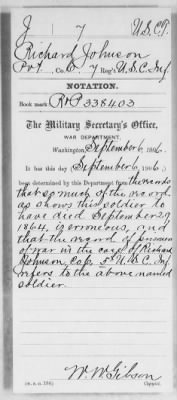 J 7 U.S.C.T.
Richard Johnson
Pvt, Co. C, 7 Reg't U.S.C. Inf
NOTATION.
Book mark: R & P 338403
The Military Secretary's Office,
WAR DEPARTMENT,
Washington, September 6, 1906.
It has this day (September 6, 1906.)
been determined by this Department from the records
that so much of the record
as shows this soldier to
have died September 29
1864, is erroneous, and
that the record of prisoner
of war in the case of Richard
Johnson, Co. C, 5" U.S.C. Inf
refers to the above named
soldier.
W. W. Gibson
Copyist.